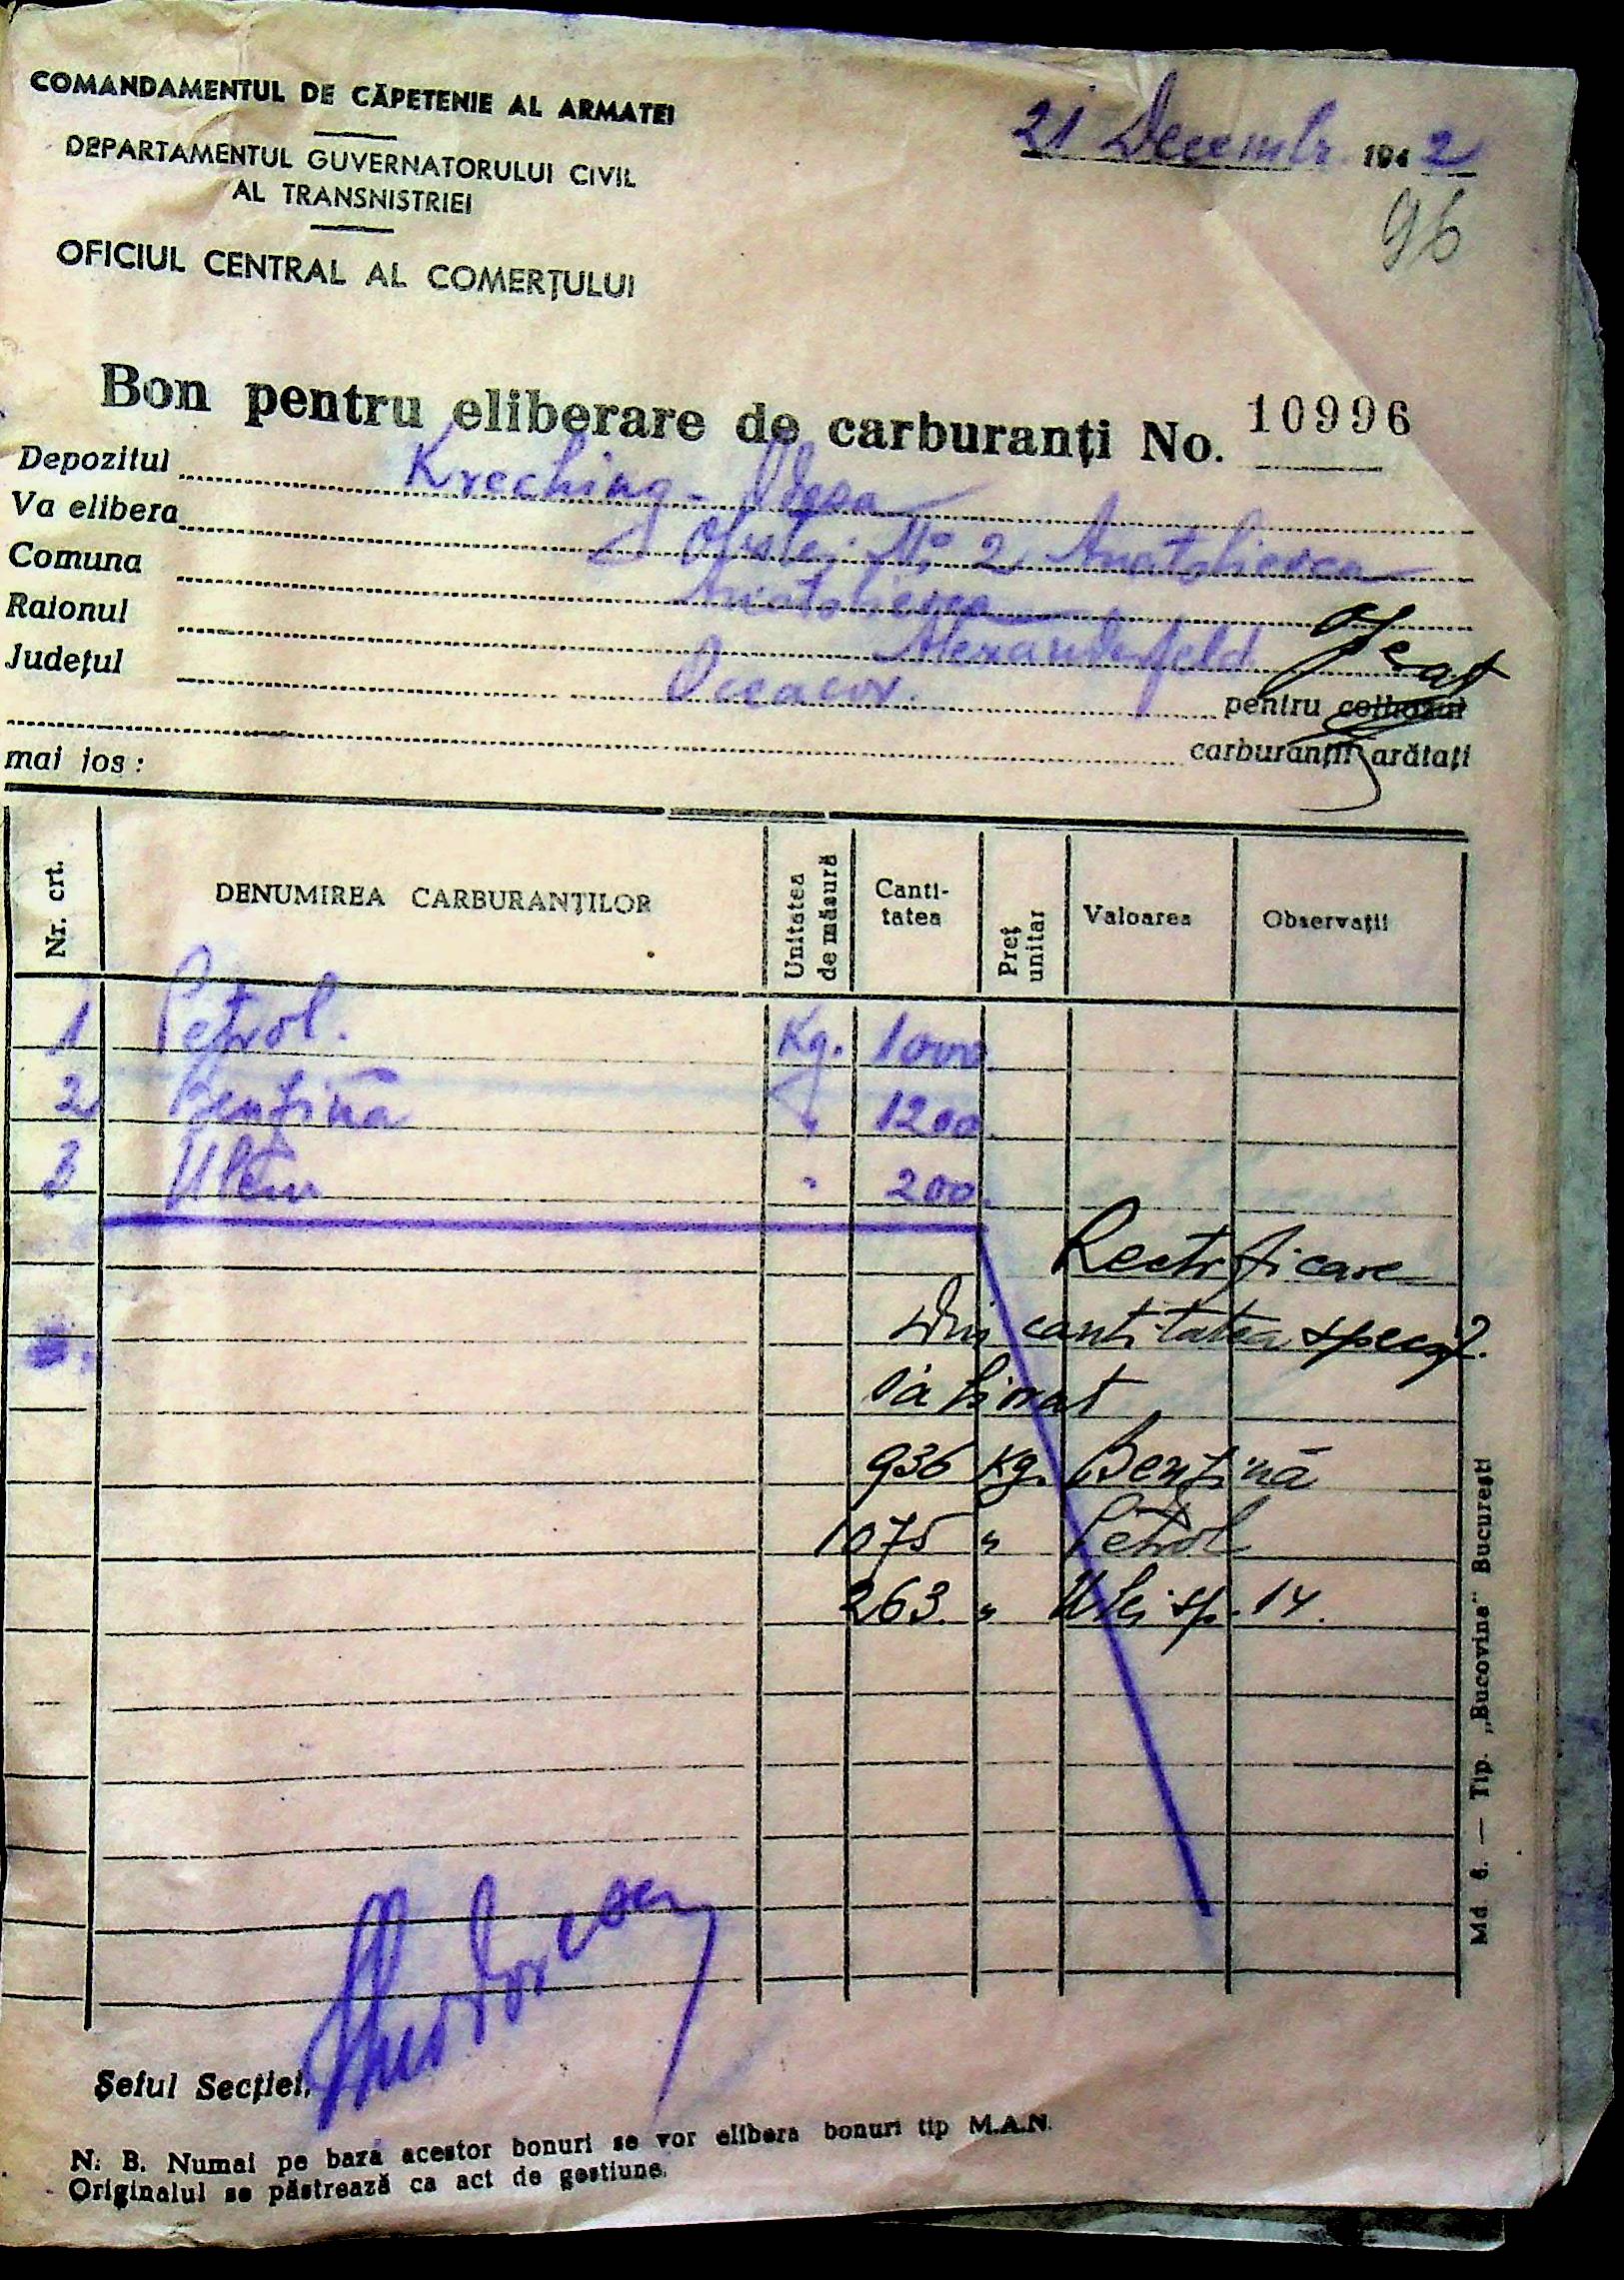 COMANDAMENTUL DE CĂPETENIE AL ARMATEI
DEPARTAMENTUL GUVERNATORULUI CIVIL
AL TRANSNISTRIEI
OFICIUL CENTRAL AL COMERȚULUI
21 Decembr. 1942
96
Bon pentru eliberare de carburanți No. 10996
Depozitul Kreching - Odesa
Va elibera No 2 Anatolievca
Comuna Anatolievca
Raionul Alexanderfeld
Județul Oceacov. pentru colhozul
carburanții arătați
mai jos:
Nr. crt. DENUMIREA CARBURANȚILOR Unitatea de măsură Cantitatea Preț unitar Valoarea Observații
1 Petrol. Kg. 1000
2 Benzină " 1200
3 Uleiu " 200
Rectificare
Din cantitatea specif.
s'a livrat
936 Kg. Benzină
1075 " Petrol
263 " Ulei sp. 14.
Șeful Secției,
N. B. Numai pe baza acestor bonuri se vor elibera bonuri tip M.A.N.
Originalul se păstrează ca act de gestiune.
Md. 6. — Tip. „Bucovina" București